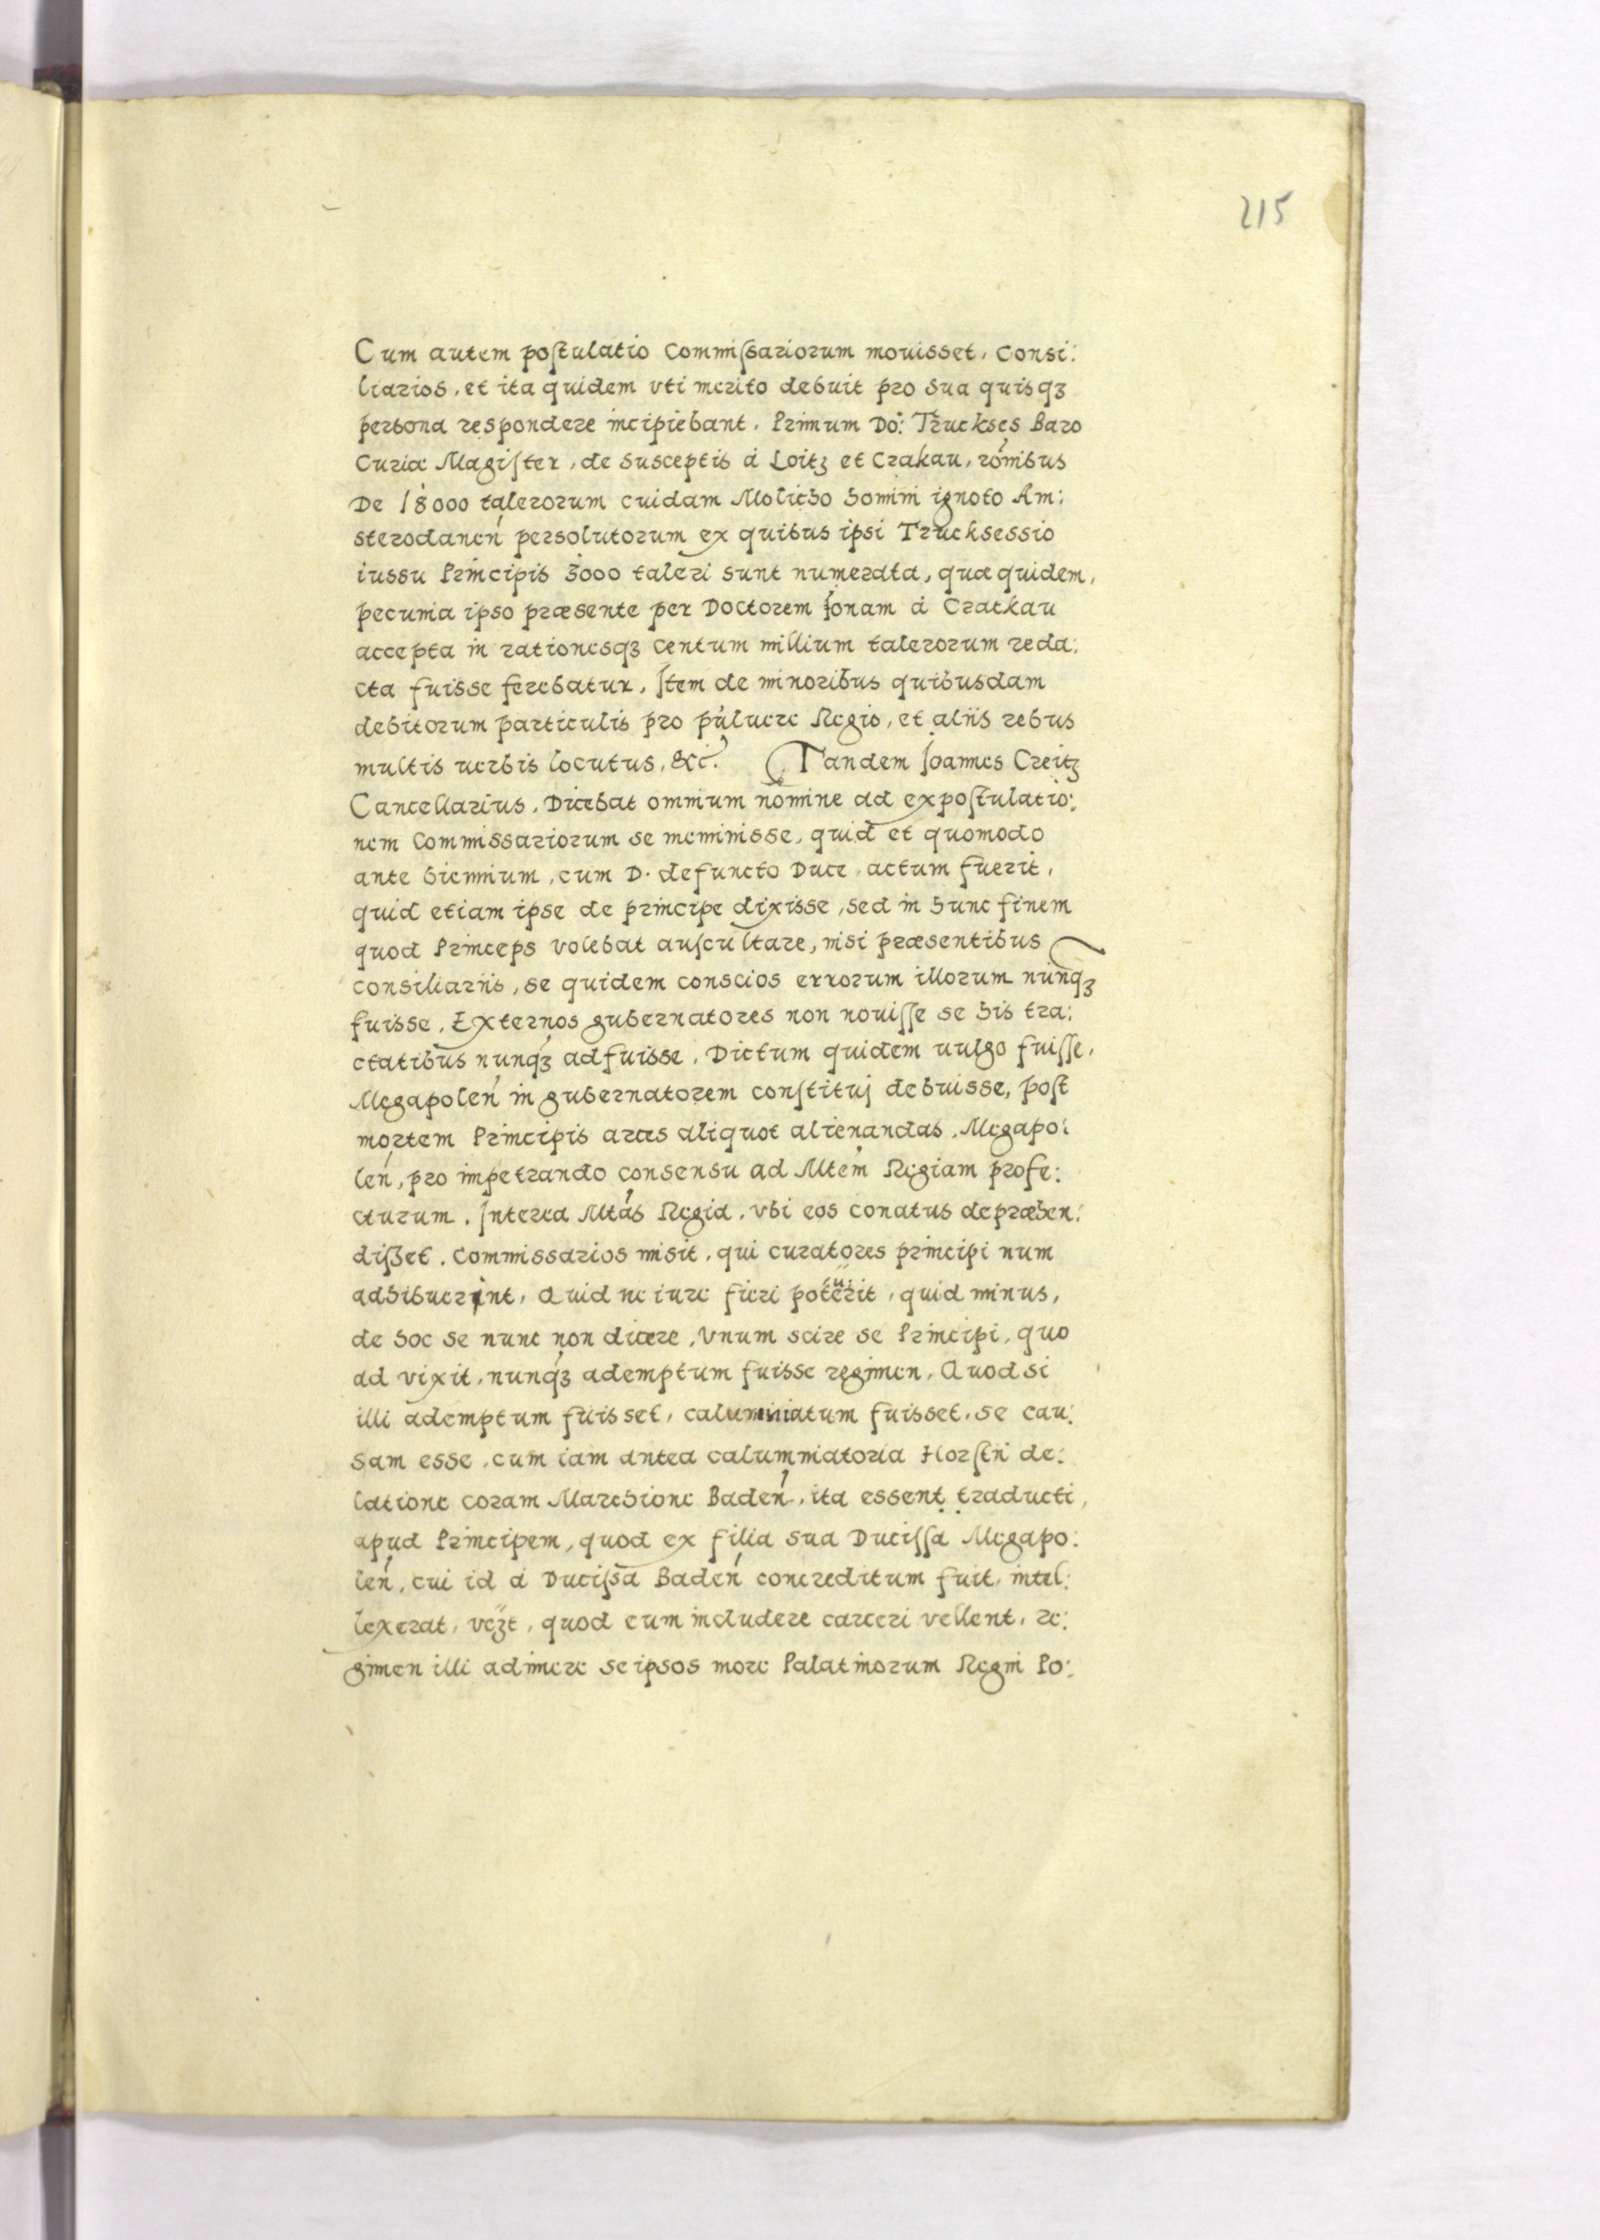 215
Cum autem postulatio Commissariorum mouisset, Consi:
liarios, et ita quidem vti merito debuit pro sua quisqꝫ
persona respondere incipiebant. Primum Do: Truckses Baro
Curiæ Magister, de susceptis á Loitz et Crakau, rõnibus
De 18000 talerorum cuidam Molicho homini ignoto Am:
sterodaneń persolutorum ex quibus ipsi Trucksessio
iussu Principis 3000 taleri sunt numerata, quæ quidem,
pecunia ipso præsente per Doctorem Jonam á Crackau
accepta in rationesqꝫ centum millium talerorum reda:
cta fuisse ferebatur, Item de minoribus quibusdam
debitorum particulis pro puluere Regio, et aliis rebus
multis uerbis locutus, &c. Tandem Joannes Creitz
Cancellarius, Dicebat omnium nomine ad expostulatio:
nem Commissariorum se meminisse, quid et quomodo
ante biennium, cum D. defuncto Duce, actum fuerit,
quid etiam ipse de principe dixisse, sed in hunc finem
quod Princeps volebat auscultare, nisi præsentibus
consiliariis, se quidem conscios errorum illorum nunqꝫ
fuisse, Externos gubernatores non nouisse se his tra:
ctatibus nunqꝫ adfuisse, Dictum quidem uulgo fuisse,
Megapoleń in gubernatorem constitui debuisse, post
mortem Principis arces aliquot alienandas, Megapo:
leń, pro impetrando consensu ad Mtem Regiam profe:
cturum. Interea Mtás Regia, vbi eos conatus depræhen:
disset. Commissarios misit, qui curatores principi num
adhibuerint, Quid ue iure fieri poterit, quid minus,
de hoc se nunc non dicere, Vnum scire se Principi, quo
ad vixit, nunqꝫ ademptum fuisse regimen, Quod si
illi ademptum fuisset, calumniatum fuisset, se cau:
sam esse, cum iam antea calumniatoria Horstii de:
latione coram Marchione Badeń, ita essent traducti,
apud Principem, quod ex filia sua Ducissa Megapo:
leń, cui id á Ducissa Badeń concreditum fuit, intel:
lexerat, quod eum includere carceri vellent, re:
gimen illi adimere se ipsos more Palatinorum Regni Po: